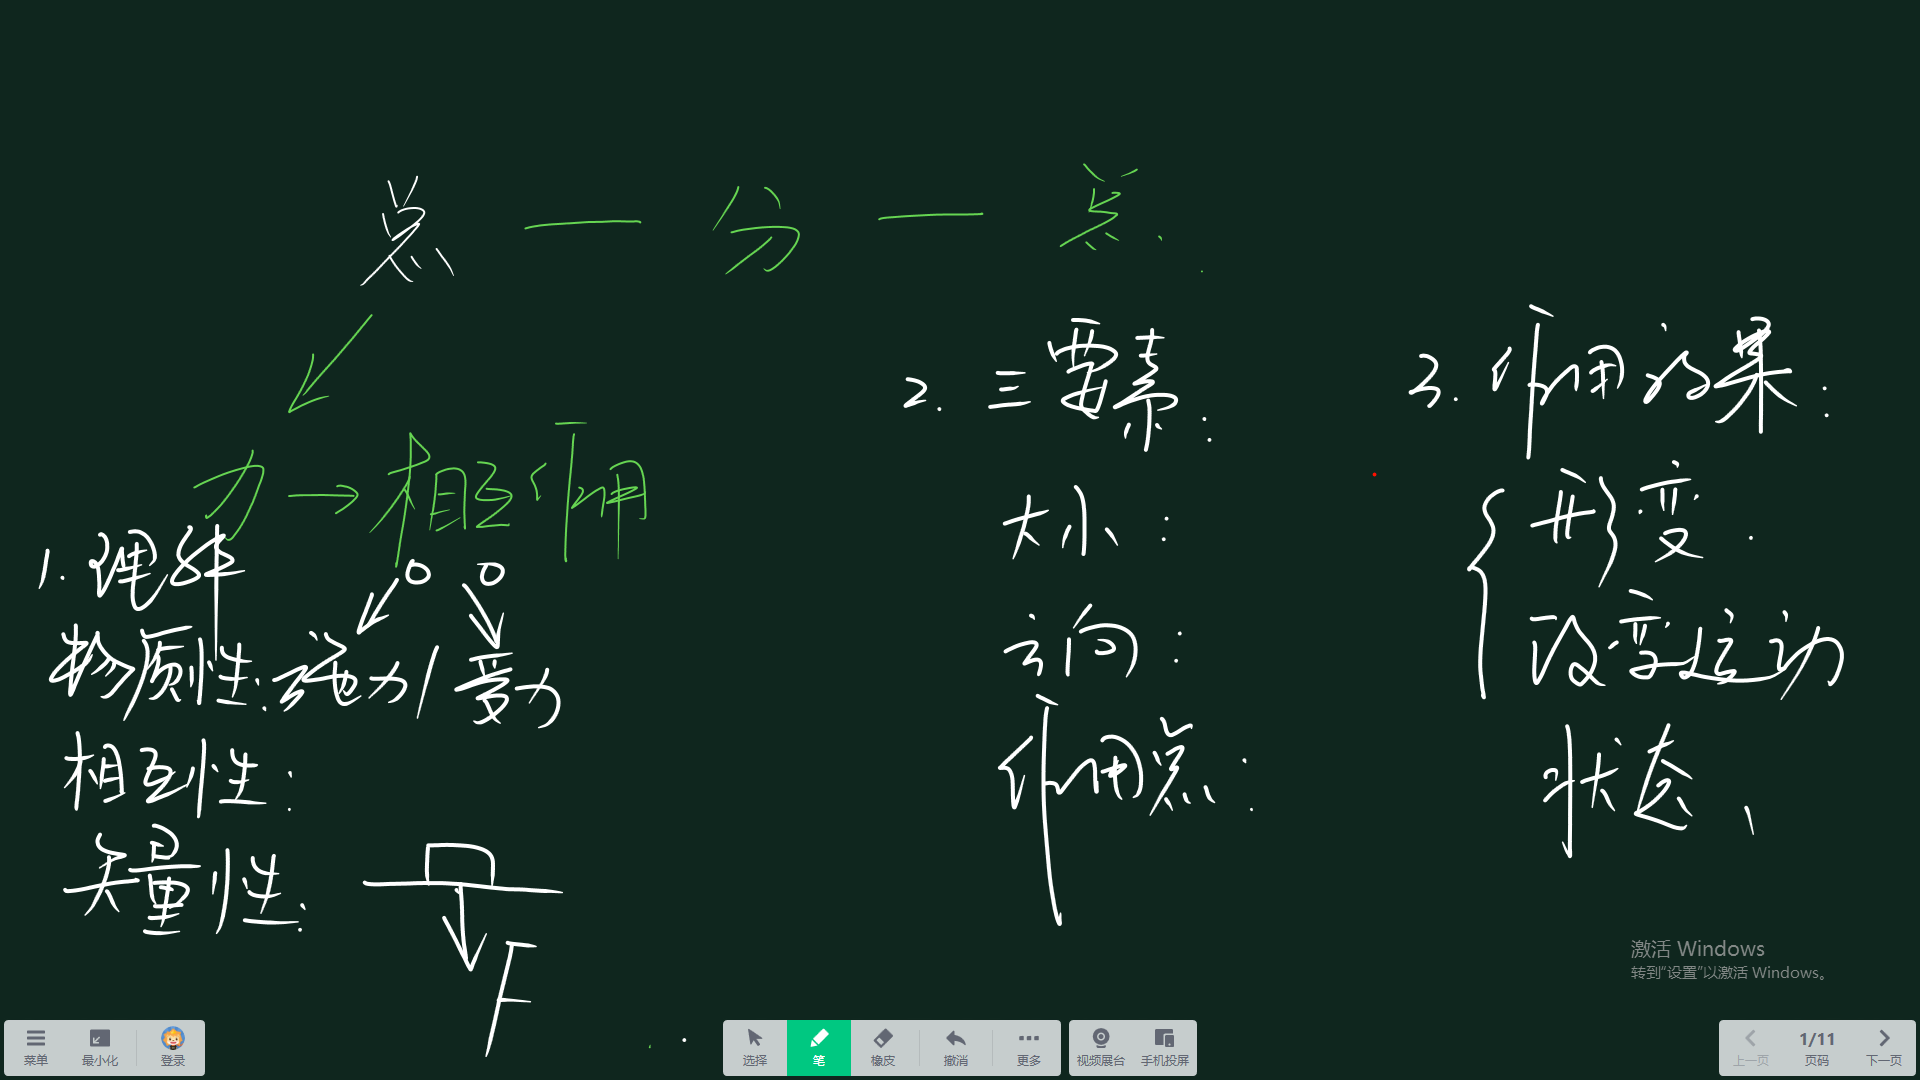 总 — 分 — 总
力 → 相互作用
1. 理解
物质性: 施力/受力
相互性:
矢量性:
F
2. 三要素:
大小:
方向:
作用点:
3. 作用效果:
形变.
改变运动
状态、
激活 Windows
转到“设置”以激活 Windows。
菜单 最小化 登录 选择 笔 橡皮 撤消 更多 视频展台 手机投屏 上一页 1/11 页码 下一页